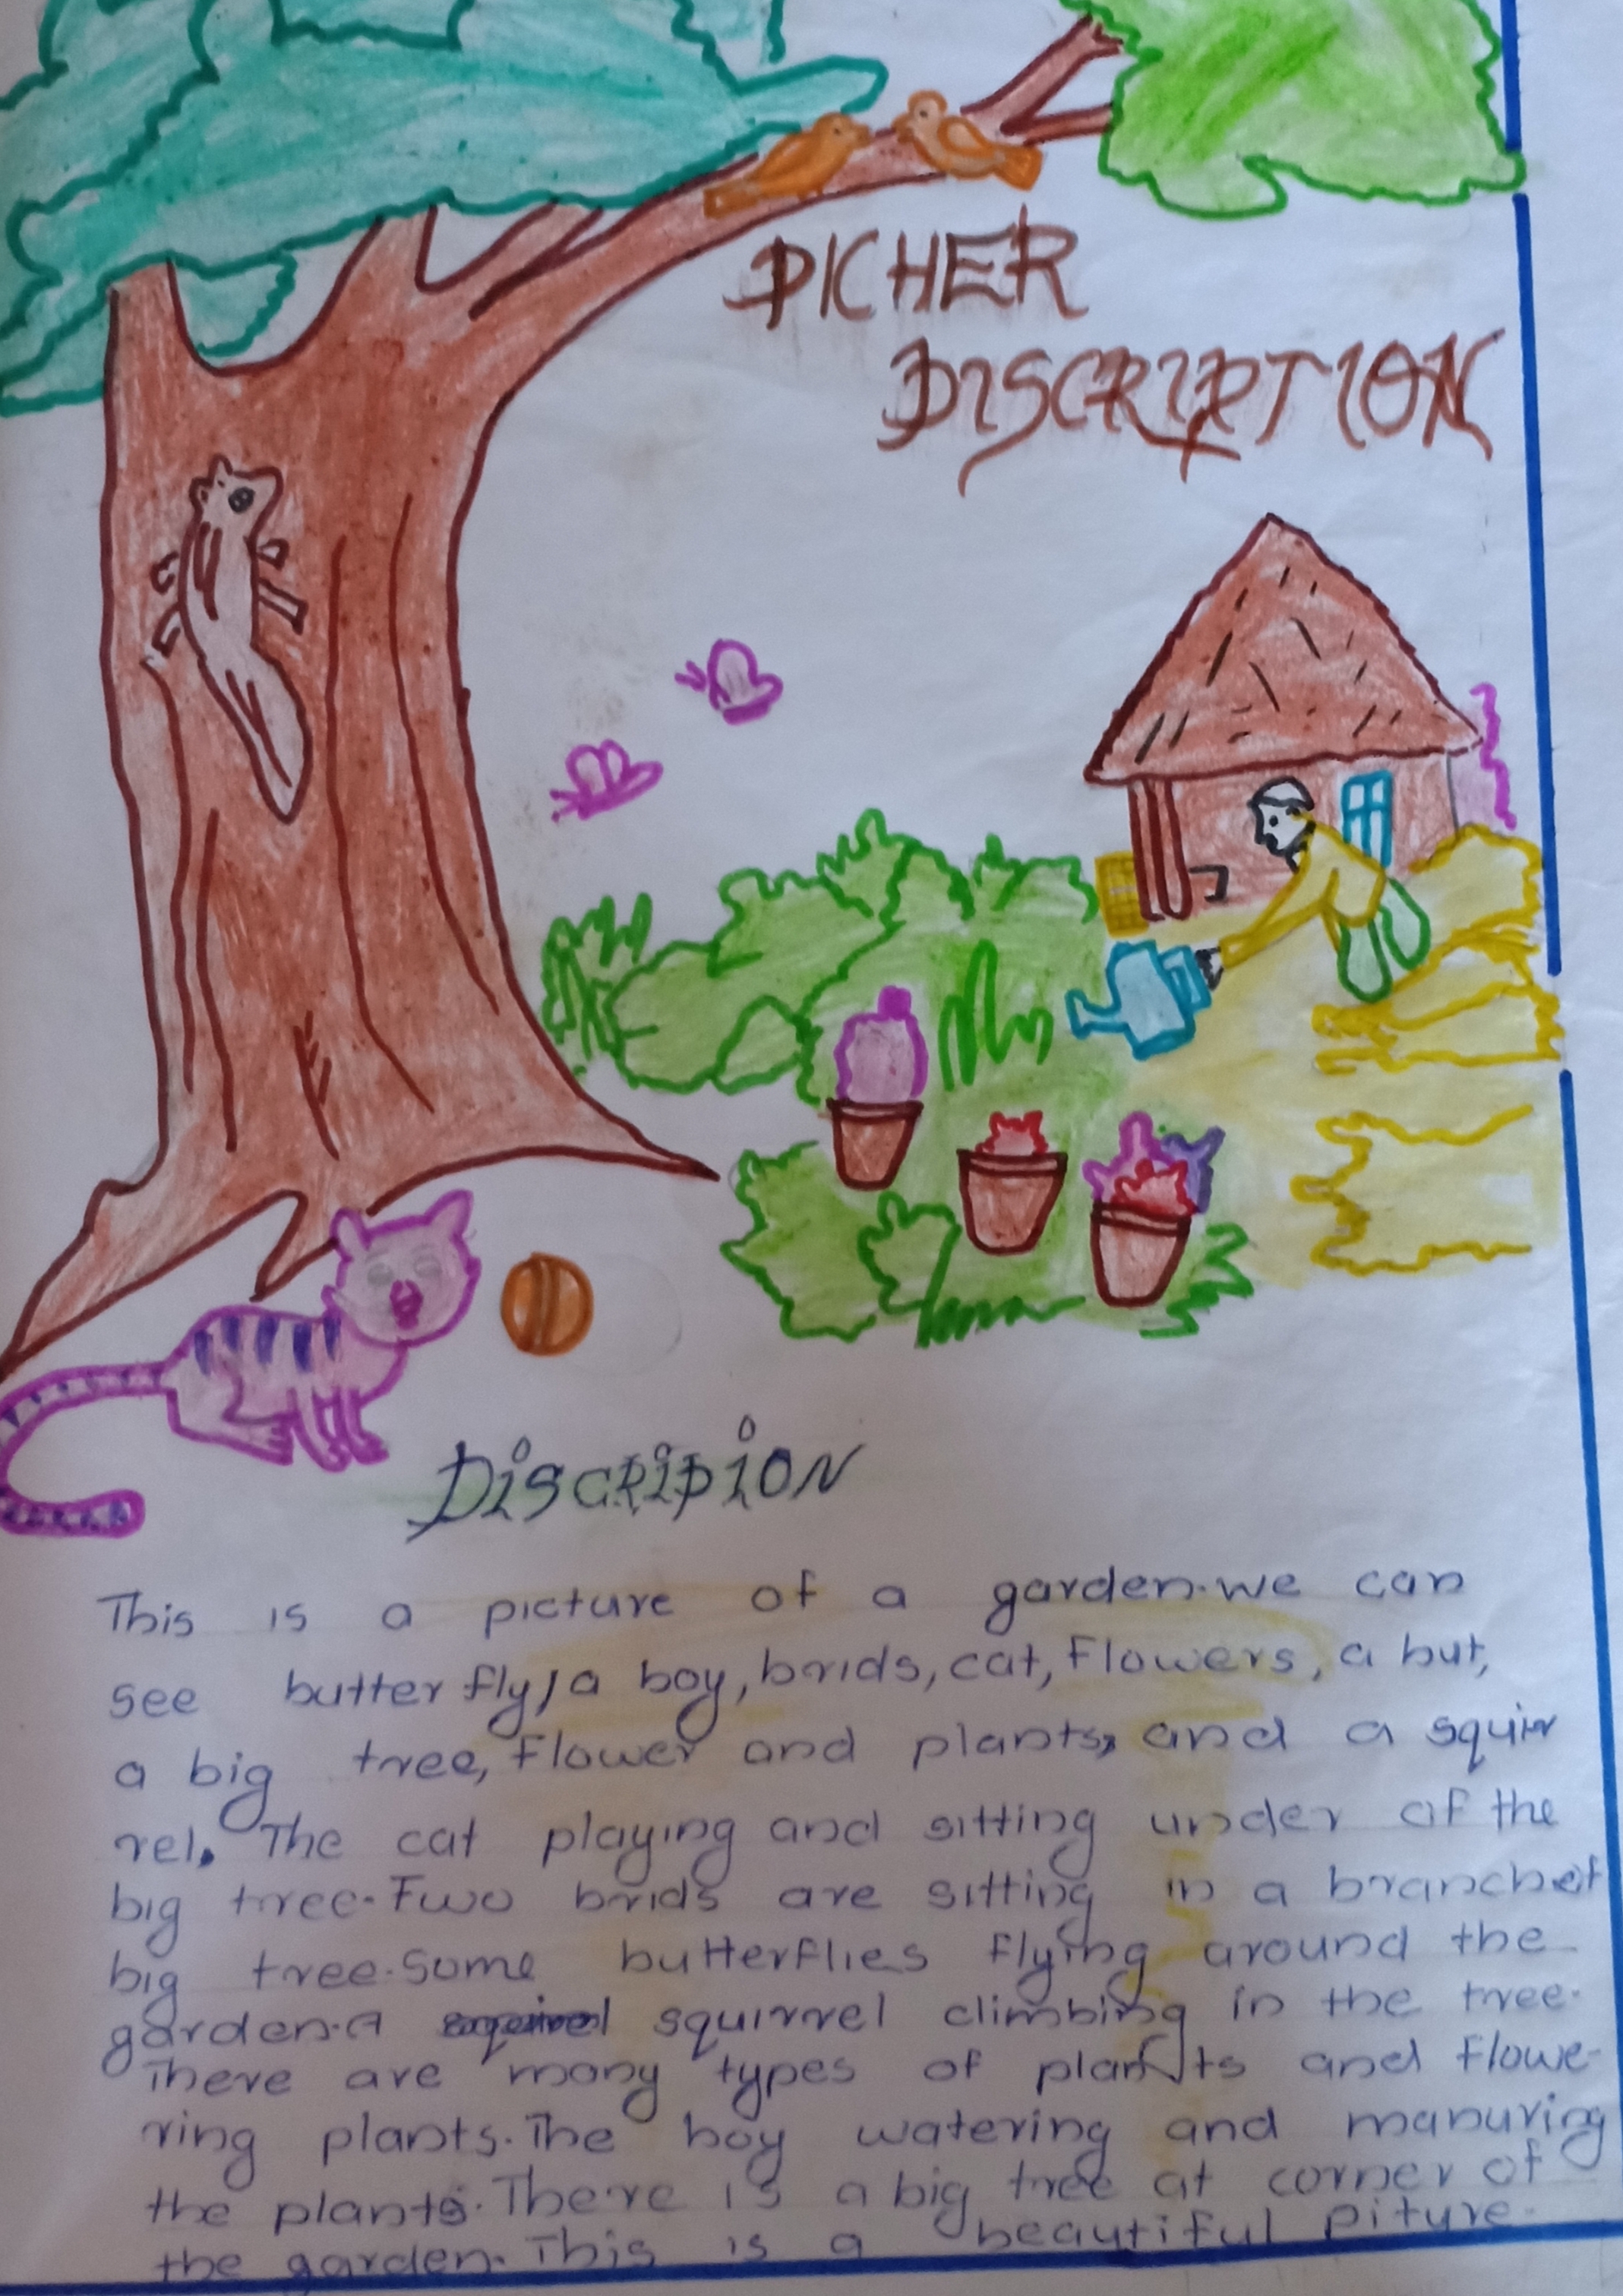 PICHER
DISCRIPTION
DiSCRIPiON
This is a picture of a garden. we can
see butter fly, a boy, brids, cat, Flowers, a but,
a big tree, Flower and plants, and a squir
rel. The cat playing and sitting under of the
big tree. Two brids are sitting in a branch of
big tree. Some butterflies flying around the
garden. A squirrel climbing in the tree.
There are many types of plants and flowe-
ring plants. The boy watering and manuring
the plants. There is a big tree at corner of
the garden. This is a beautiful piture.